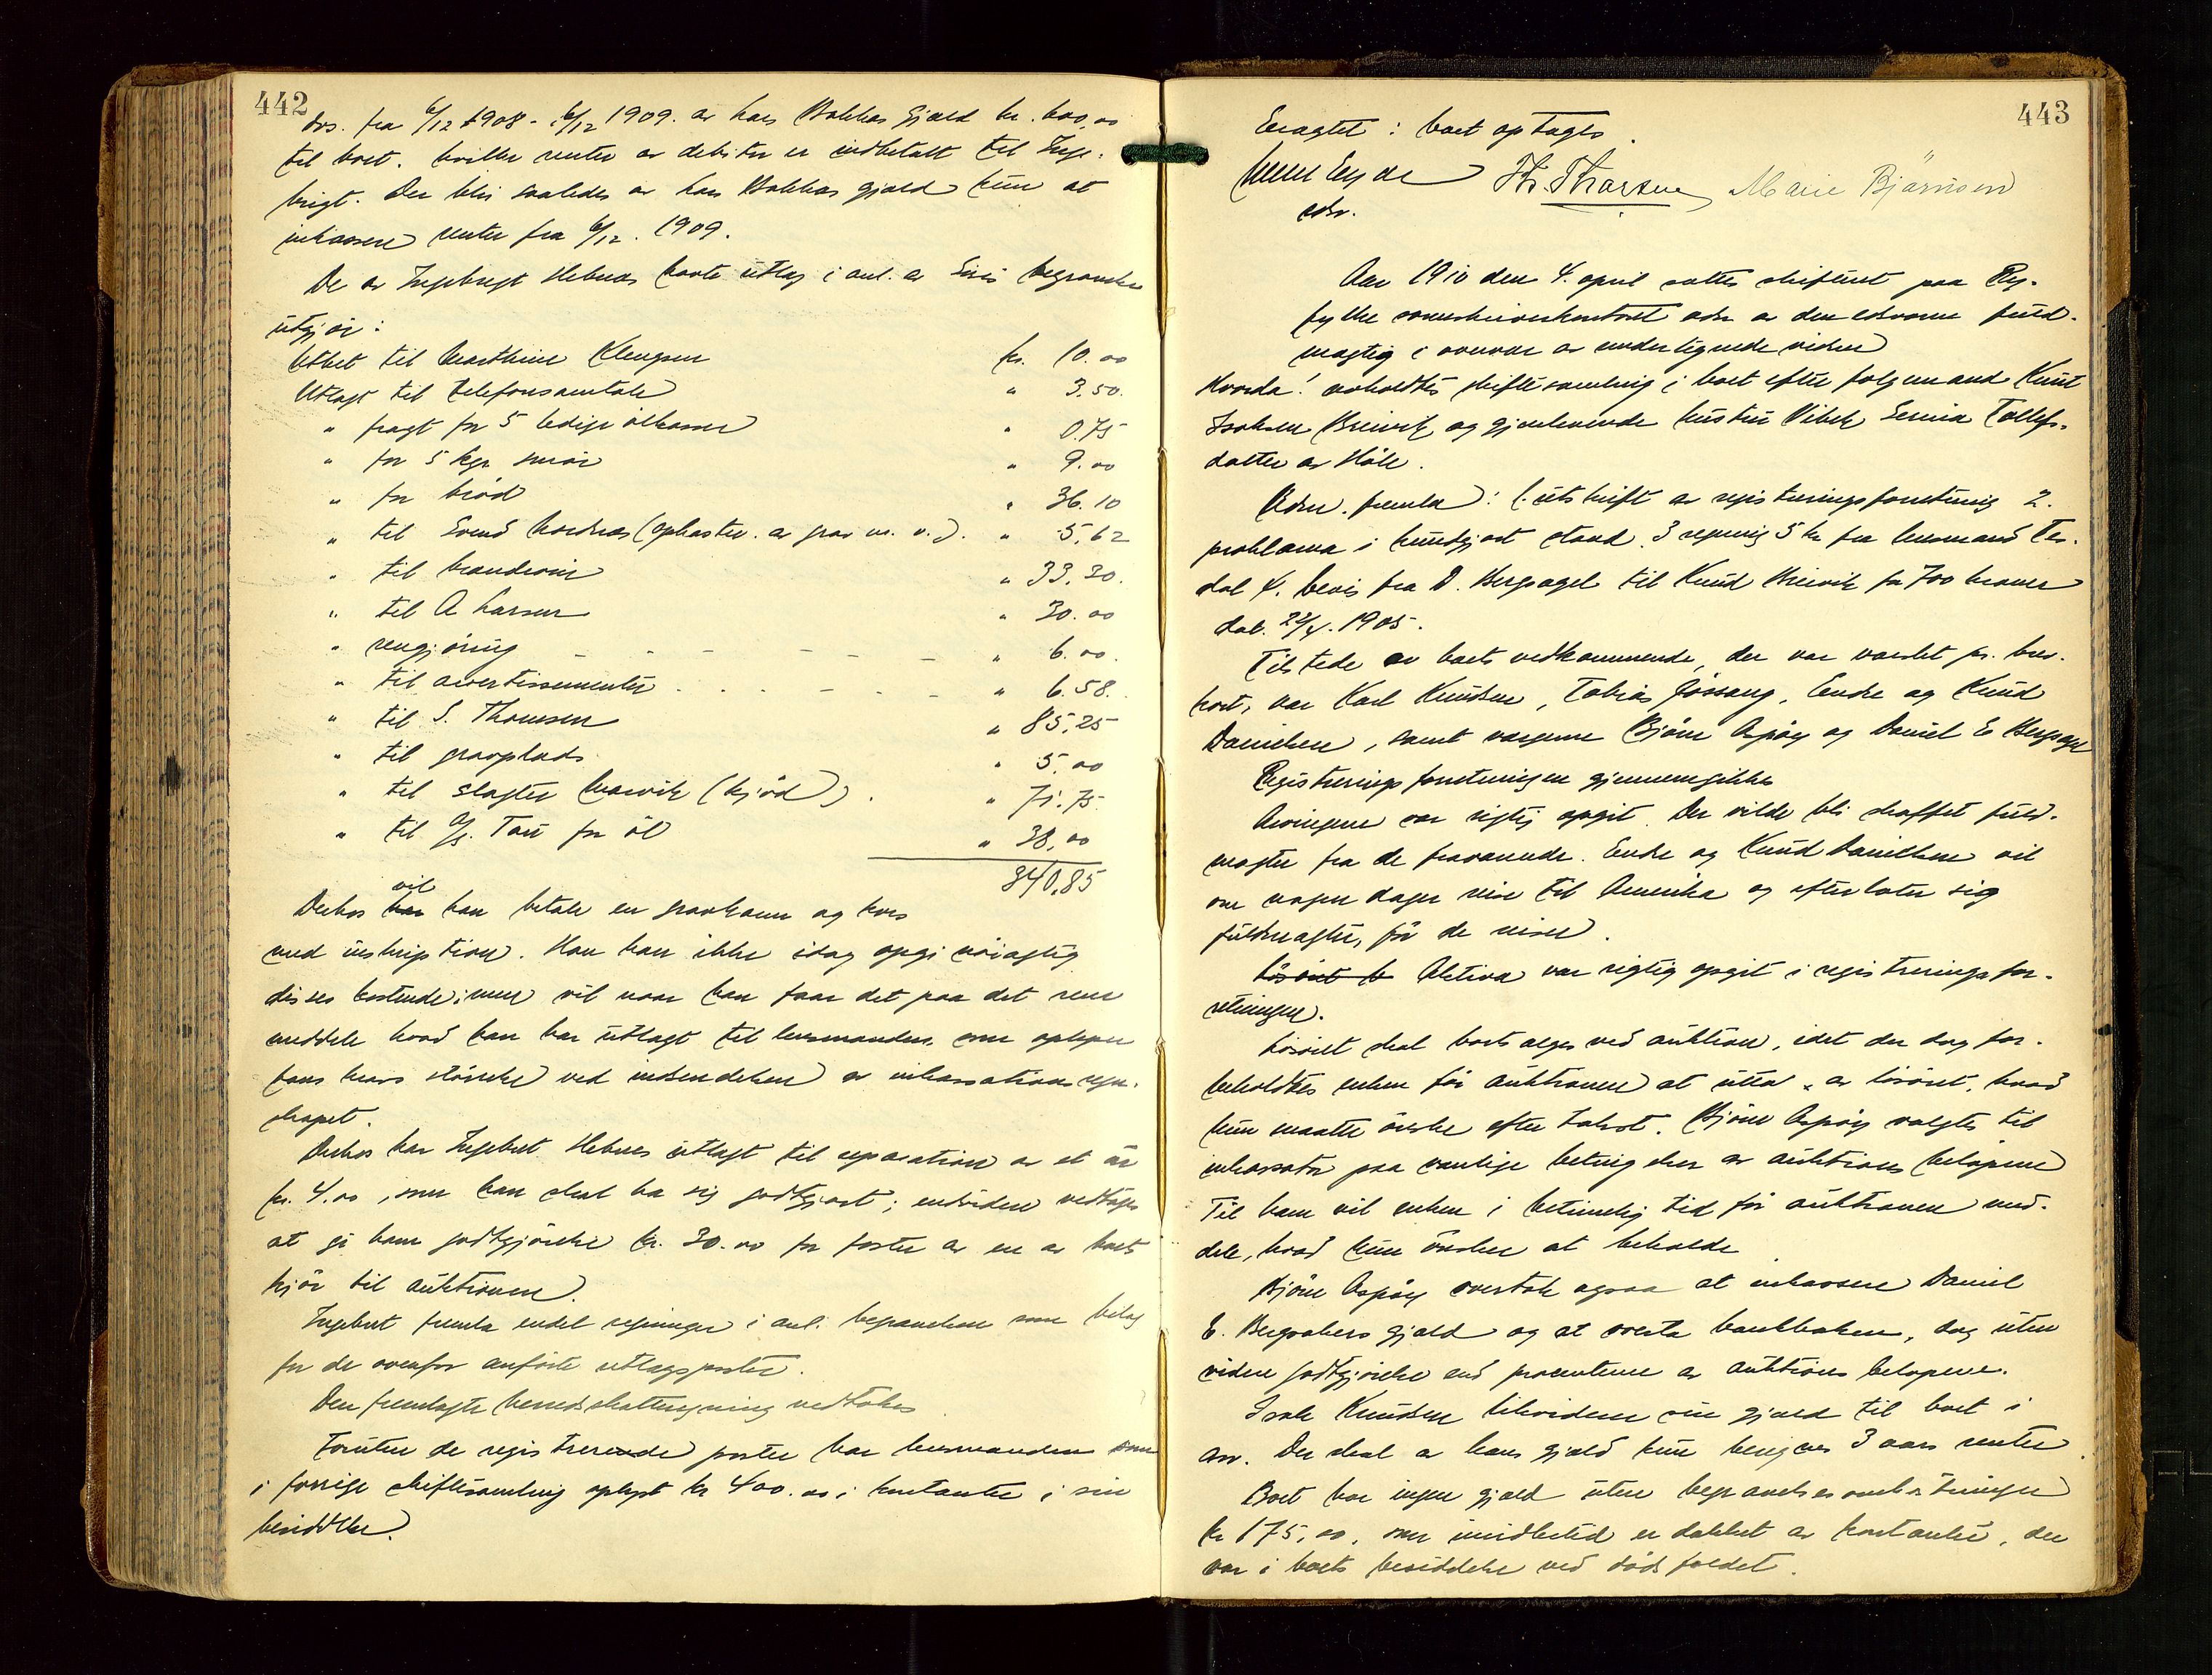 442
drs. fra 6/12 1908 - 6/12 1909. av hans Bakkas gjæld kr. 600,00
til boet. hvilke renter av debitor er indbetalt til Inge-
brigt. Der blir saaledes av hans Bakkas gjæld kun at
inkassere renter fra 6/12. 1909.
De av Ingebrigt Helvas havte utlæg i anl. av begravelse
utgjør:
til Marthine Klungsen kr. 10.00
Utlagt til telefonsamtale " 3.50.
" fragt for 5 ledige ølkasser " 0.75
" for 5 kgr smør " 9.00
" for brød " 36.10
" til Svend (opkastn. av grav m. v.). " 5.62
" til brændevin " 33.30.
" til A Larsen " 30.00
" rengjøring " 6.00.
" til avertissementer " 6.58.
" til S. Thomsen " 85.25
" til gravplads " 5.00
" til slagter (kjød) . " 71.75
" til A/S. Tou for øl " 38.00
340.85
Derhos vil han betale en gravramme og kors
med inskription. Han kan ikke idag opgi nøiagtig
disses kostende; men vil naar han faar det paa det rene
meddele hvad han har utlagt til lensmanden, som oplyser
hans kravs størrelse ved indsendelsen av inkassationsregn-
skapet.
Derhos har Ingebret Helvas utlagt til reparation av et ur
kr. 4.00, som han skal ha sig godtgjort; endvidere vedtages
at gi ham godtgjørelse kr. 30.00 for foster av en av boets
kjør til auktionen.
Ingebret fremla endel regninger i anl. begravelsen som bilag
for de ovenfor anførte utlægsposter.
Den fremlagte herredskatteregning vedtokes
Foruten de registrerede poster har lensmanden som
i forrige skiftesamling oplyst kr 400.00 i kontanter i sin
besiddelse.
443
Eragtet: boet optages.
Th. Tharsen Marie Bjørnsen
edsv.
Aar 1910 den 4. april sattes skifteret paa Ry-
fylke sorenskriverkontor adm av den edsvorne fuld-
mægtig i overvær av undertegnede vidner
Hvorda! avholdtes skiftesamling i boet efter følgemand Knut
Isaksen Breivik og gjenlevende hustru Vibek Serina Tollefs-
datter av Høle.
Adm. fremla: 1. utskrift av registreringsforretning 2.
proklama i kundgjort stand. 3 regning 5 kr fra lensmand Tes-
dal 4. bevis fra D. Bergsagel til Knud Breivik for 700 kroner
dat. 22/4. 1905.
Tilstede av boets vedkommende, der var varslet pr. brev-
kort, var Karl Knudsen, Tobias Jøssang, Endre og Knud
Danielsen, samt vergerne Bjørn Aspøy og Daniel E Bergsagel
Registreringsforretningen gjennemgikkes
Arvingerne var rigtig opgit. Der vilde bli skaffet fuld-
magter fra de fraværende. Endre og Knud Danielsen vil
om nogen dager reise til Amerika og efterlater sig
fuldmagter, før de reiser.
Løsøret b Aktiva var rigtig opgit i registreringsfor-
retningen.
Løsøret skal bortsælges ved auktion, idet der dog for-
beholdtes enken før auktionen at utta av løsøret, hvad
hun maatte ønske efter takst. Bjørn Aspøy valgtes til
inkassator paa vanlige betingelser av auktions beløpene
Til ham vil enken i betimelig tid før auktionen med-
dele, hvad hun ønsker at beholde.
Bjørn Aspøy overtok ogsaa at inkassere Daniel
E. Bergsakers gjæld og at overta bankboken, dog uten
videre godtgjørelse end procenterne av auktions beløpene.
Isak Knudsen likviderer sin gjæld til boet i
arv. Der skal av hans gjæld kun beregnes 3 aars renter
Boet har ingen gjæld uten begravelsesomkostninger
kr 175,00, som imidlertid er dækket av kontanter, der
var i boets besiddelse ved dødsfaldet.